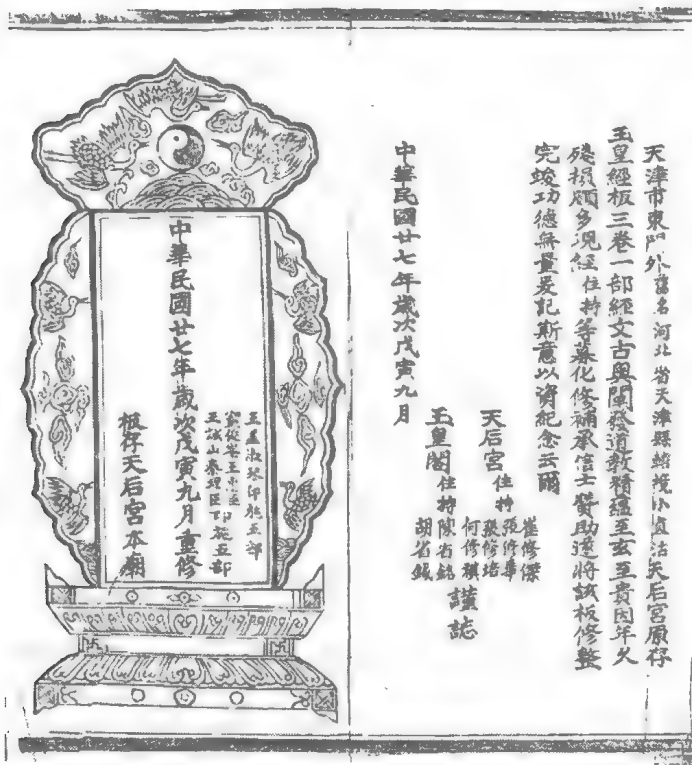 天津市東門外舊名河北省天津縣轄境小直沽天后宮原存
玉皇經板三卷一部經文古奧闡發道教精蘊至玄至貴因年久
殘損頗多現經住持等募化修補承信士贊助遂將該板修整
完竣功德無量爰記斯意以資紀念云爾
天后宮住持
崔修傑
張修華
張修培
何修祺
玉皇閣住持
陳省銘
胡省鉞
謹誌
中華民國廿七年歲次戊寅九月
中華民國廿七年歲次戊寅九月重修
王孟淑琴印施五部
印施五部
板存天后宮本廟